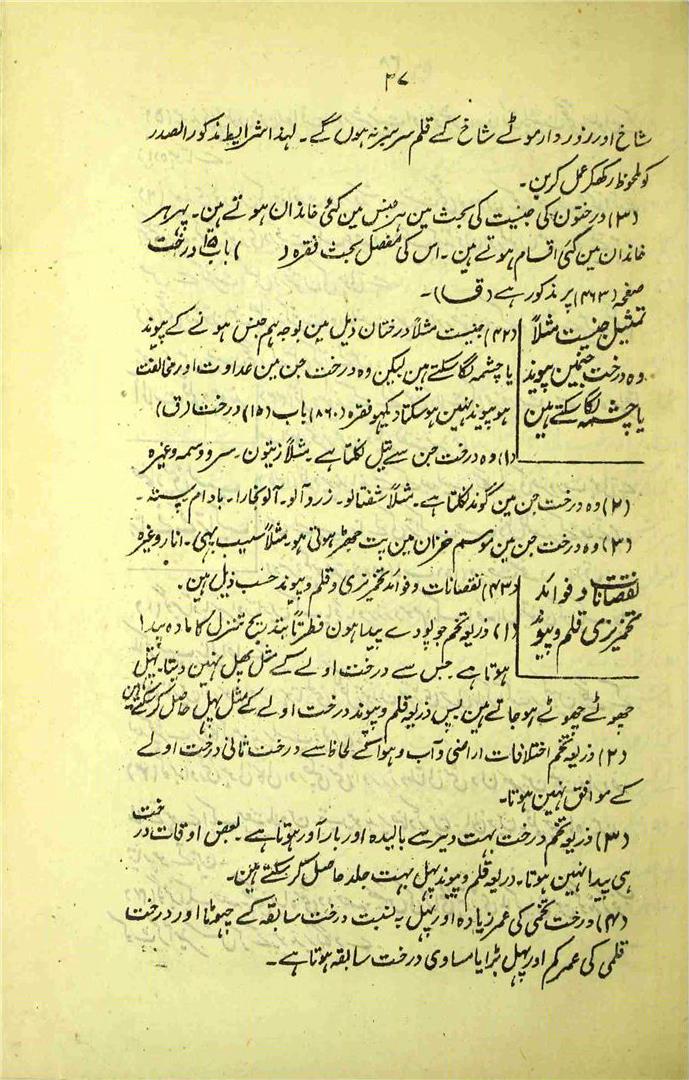 ۳۷
شاخ اور زور دار موٹے شاخ کے قلم سرسبز نہ ہوں گے۔ لہذا شرایط مذکور الصدر
کو ملحوظ رکھکر عمل کرین۔
(۳) درختون کی جنیت کی بحث مین ہر جنس مین کئی خاندان ہوتے ہین۔ پہر ہر
خاندان مین کئی اقسام ہوتے ہین۔ اس کی مفصل بحث فقرہ ( ) باب ۱۵ درخت
صفحہ (۴۶۳) پر مذکور ہے (ق)۔
تمثیل جنیت مثلاً
وہ درخت جنمین پیوند
یا چشمہ لگا سکتے ہین
(۴۲) جنیت مثلاً درختان ذیل مین بوجہ ہم جنس ہونے کے پیوند
یا چشمہ لگا سکتے ہین لیکن وہ درخت جن مین عداوت اور مخالفت
ہو پیوند نہین ہو سکتا دیکہو فقرہ (۸۶۰) باب (۱۵) درخت (ق)
(۱) وہ درخت جن سے تیل نکلتا ہے۔ مثلاً زیتون۔ سرو و سمہ وغیرہ
(۲) وہ درخت جن مین گوند نکلتا ہے۔ مثلاً شفتالو۔ زرد آلو۔ آلو بخارا۔ بادام پستہ۔
(۳) وہ درخت جن مین موسم خزان مین پت جھڑ ہوتی ہو۔ مثلاً سیب بہی۔ انار وغیرہ
نقصانات و فوائد
تخمریزی قلم و پیوند
(۴۳) نقصانات و فوائد تخمریزی و قلم و پیوند حسب ذیل ہین۔
(۱) ذریعہ تخم جو پودے پیدا ہون فطرتاً بتدریج تنزل کا مادہ پیدا
ہوتا ہے۔ جس سے درخت اولے کے مثل پھل نہین دیتا۔ پہل
چھوٹے چھوٹے ہو جاتے ہین پس ذریعہ قلم و پیوند درخت اولے کے مثل پہل حاصل کر سکتے ہین
(۲) ذریعہ تخم اختلافات اراضی و آب و ہوا کے لحاظ سے درخت ثانی درخت اولے
کے موافق نہین ہوتا۔
(۳) ذریعہ تخم درخت بہت دیر سے بالیدہ اور بارآور ہوتا ہے۔ بعض اوقات درخت
ہی پیدا نہین ہوتا۔ ذریعہ قلم و پیوند پہل بہت جلد حاصل کر سکتے ہین۔
(۴) درخت تخمی کی عمر زیادہ اور پہل بہ نسبت درخت سابقہ کے چھوٹا اور درخت
قلمی کی عمر کم اور پہل بڑا یا مساوی درخت سابقہ ہوتا ہے۔